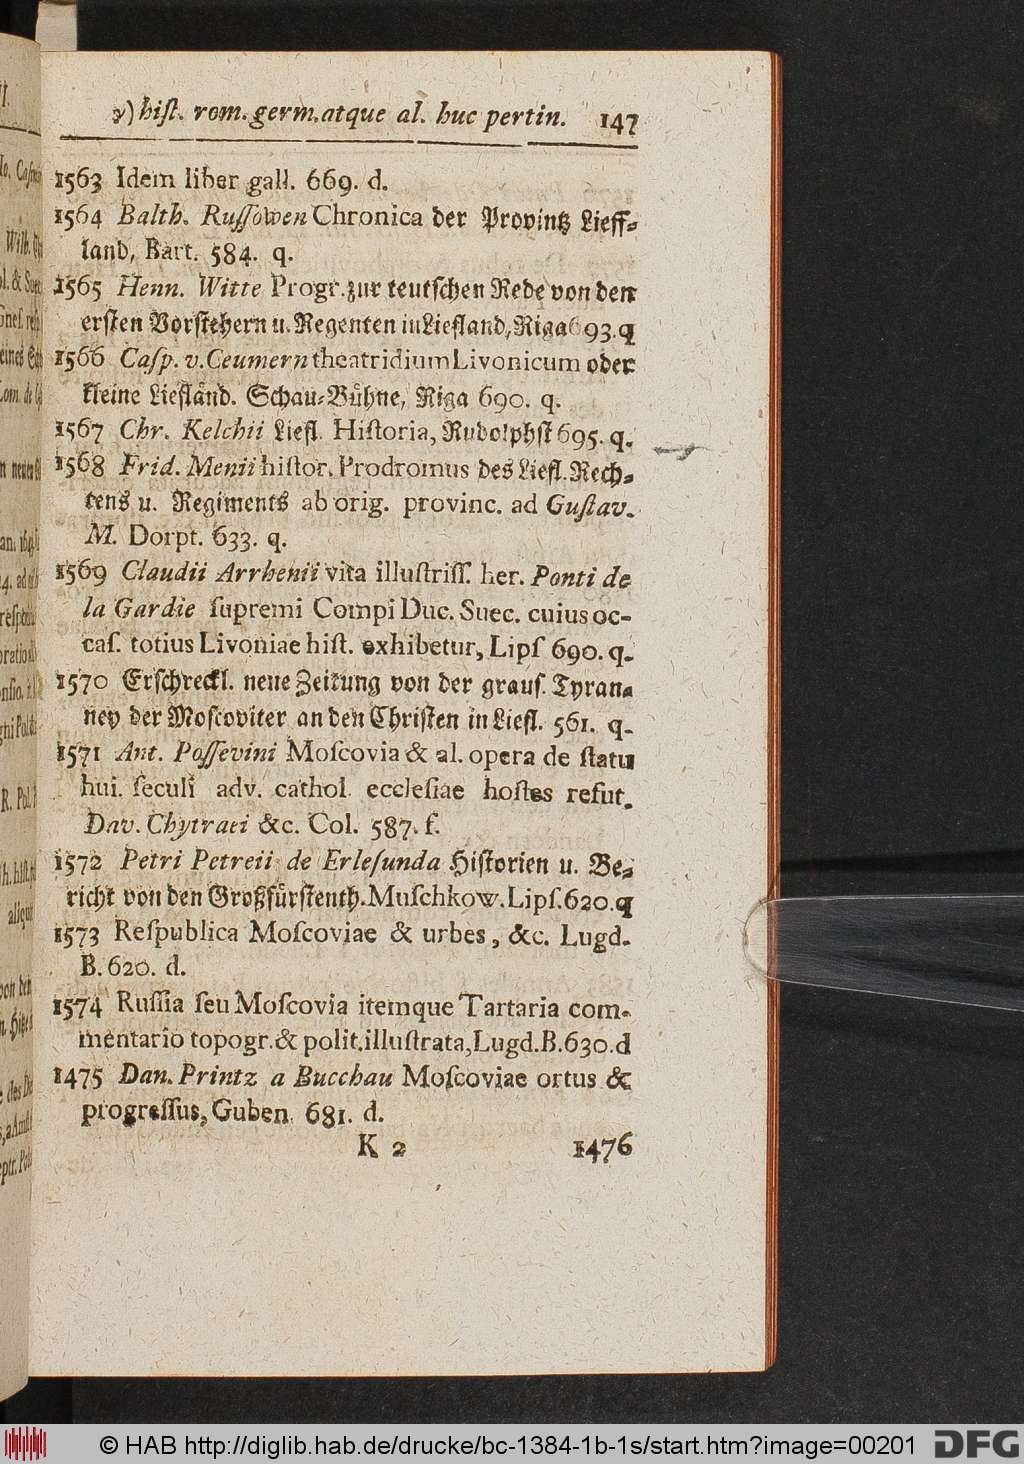 γ) hiſt. rom. germ. atque al. huc pertin. 147
1563 Idem liber gall. 669. d.
1564 Balth. Ruſſowen Chronica der Provintz Lieff-
land, Bart. 584. q.
1565 Henn. Witte Progr. zur teutſchen Rede von den
erſten Vorſtehern u. Regenten in Liefland, Riga 693. q
1566 Caſp. v. Ceumern theatridium Livonicum oder
kleine Liefländ. Schau-Bühne, Riga 690. q.
1567 Chr. Kelchii Liefl. Hiſtoria, Rudolphſt 695. q.
1568 Frid. Menii hiſtor. Prodromus des Liefl. Rech-
tens u. Regiments ab orig. provinc. ad Guſtav.
M. Dorpt. 633. q.
1569 Claudii Arrhenii vita illuſtriſſ. her. Ponti de
la Gardie ſupremi Compi Duc. Suec. cuius oc-
caſ. totius Livoniae hiſt. exhibetur, Lipſ 690. q.
1570 Erſchreckl. neue Zeitung von der grauſ. Tyran-
ney der Moſcoviter an den Chriſten in Liefl. 561. q.
1571 Ant. Poſſevini Moſcovia & al. opera de ſtatu
hui. ſeculi adv. cathol. eccleſiae hoſtes refut.
Dav. Chytraei &c. Col. 587. f.
1572 Petri Petreii de Erleſunda Hiſtorien u. Be-
richt von den Großfürſtenth. Muſchkow. Lipſ. 620. q
1573 Reſpublica Moſcoviae & urbes, &c. Lugd.
B. 620. d.
1574 Ruſſia ſeu Moſcovia itemque Tartaria com-
mentario topogr. & polit. illuſtrata, Lugd. B. 630. d
1475 Dan. Printz a Bucchau Moſcoviae ortus &
progreſſus, Guben. 681. d.
K 2 1476
© HAB http://diglib.hab.de/drucke/bc-1384-1b-1s/start.htm?image=00201 DFG